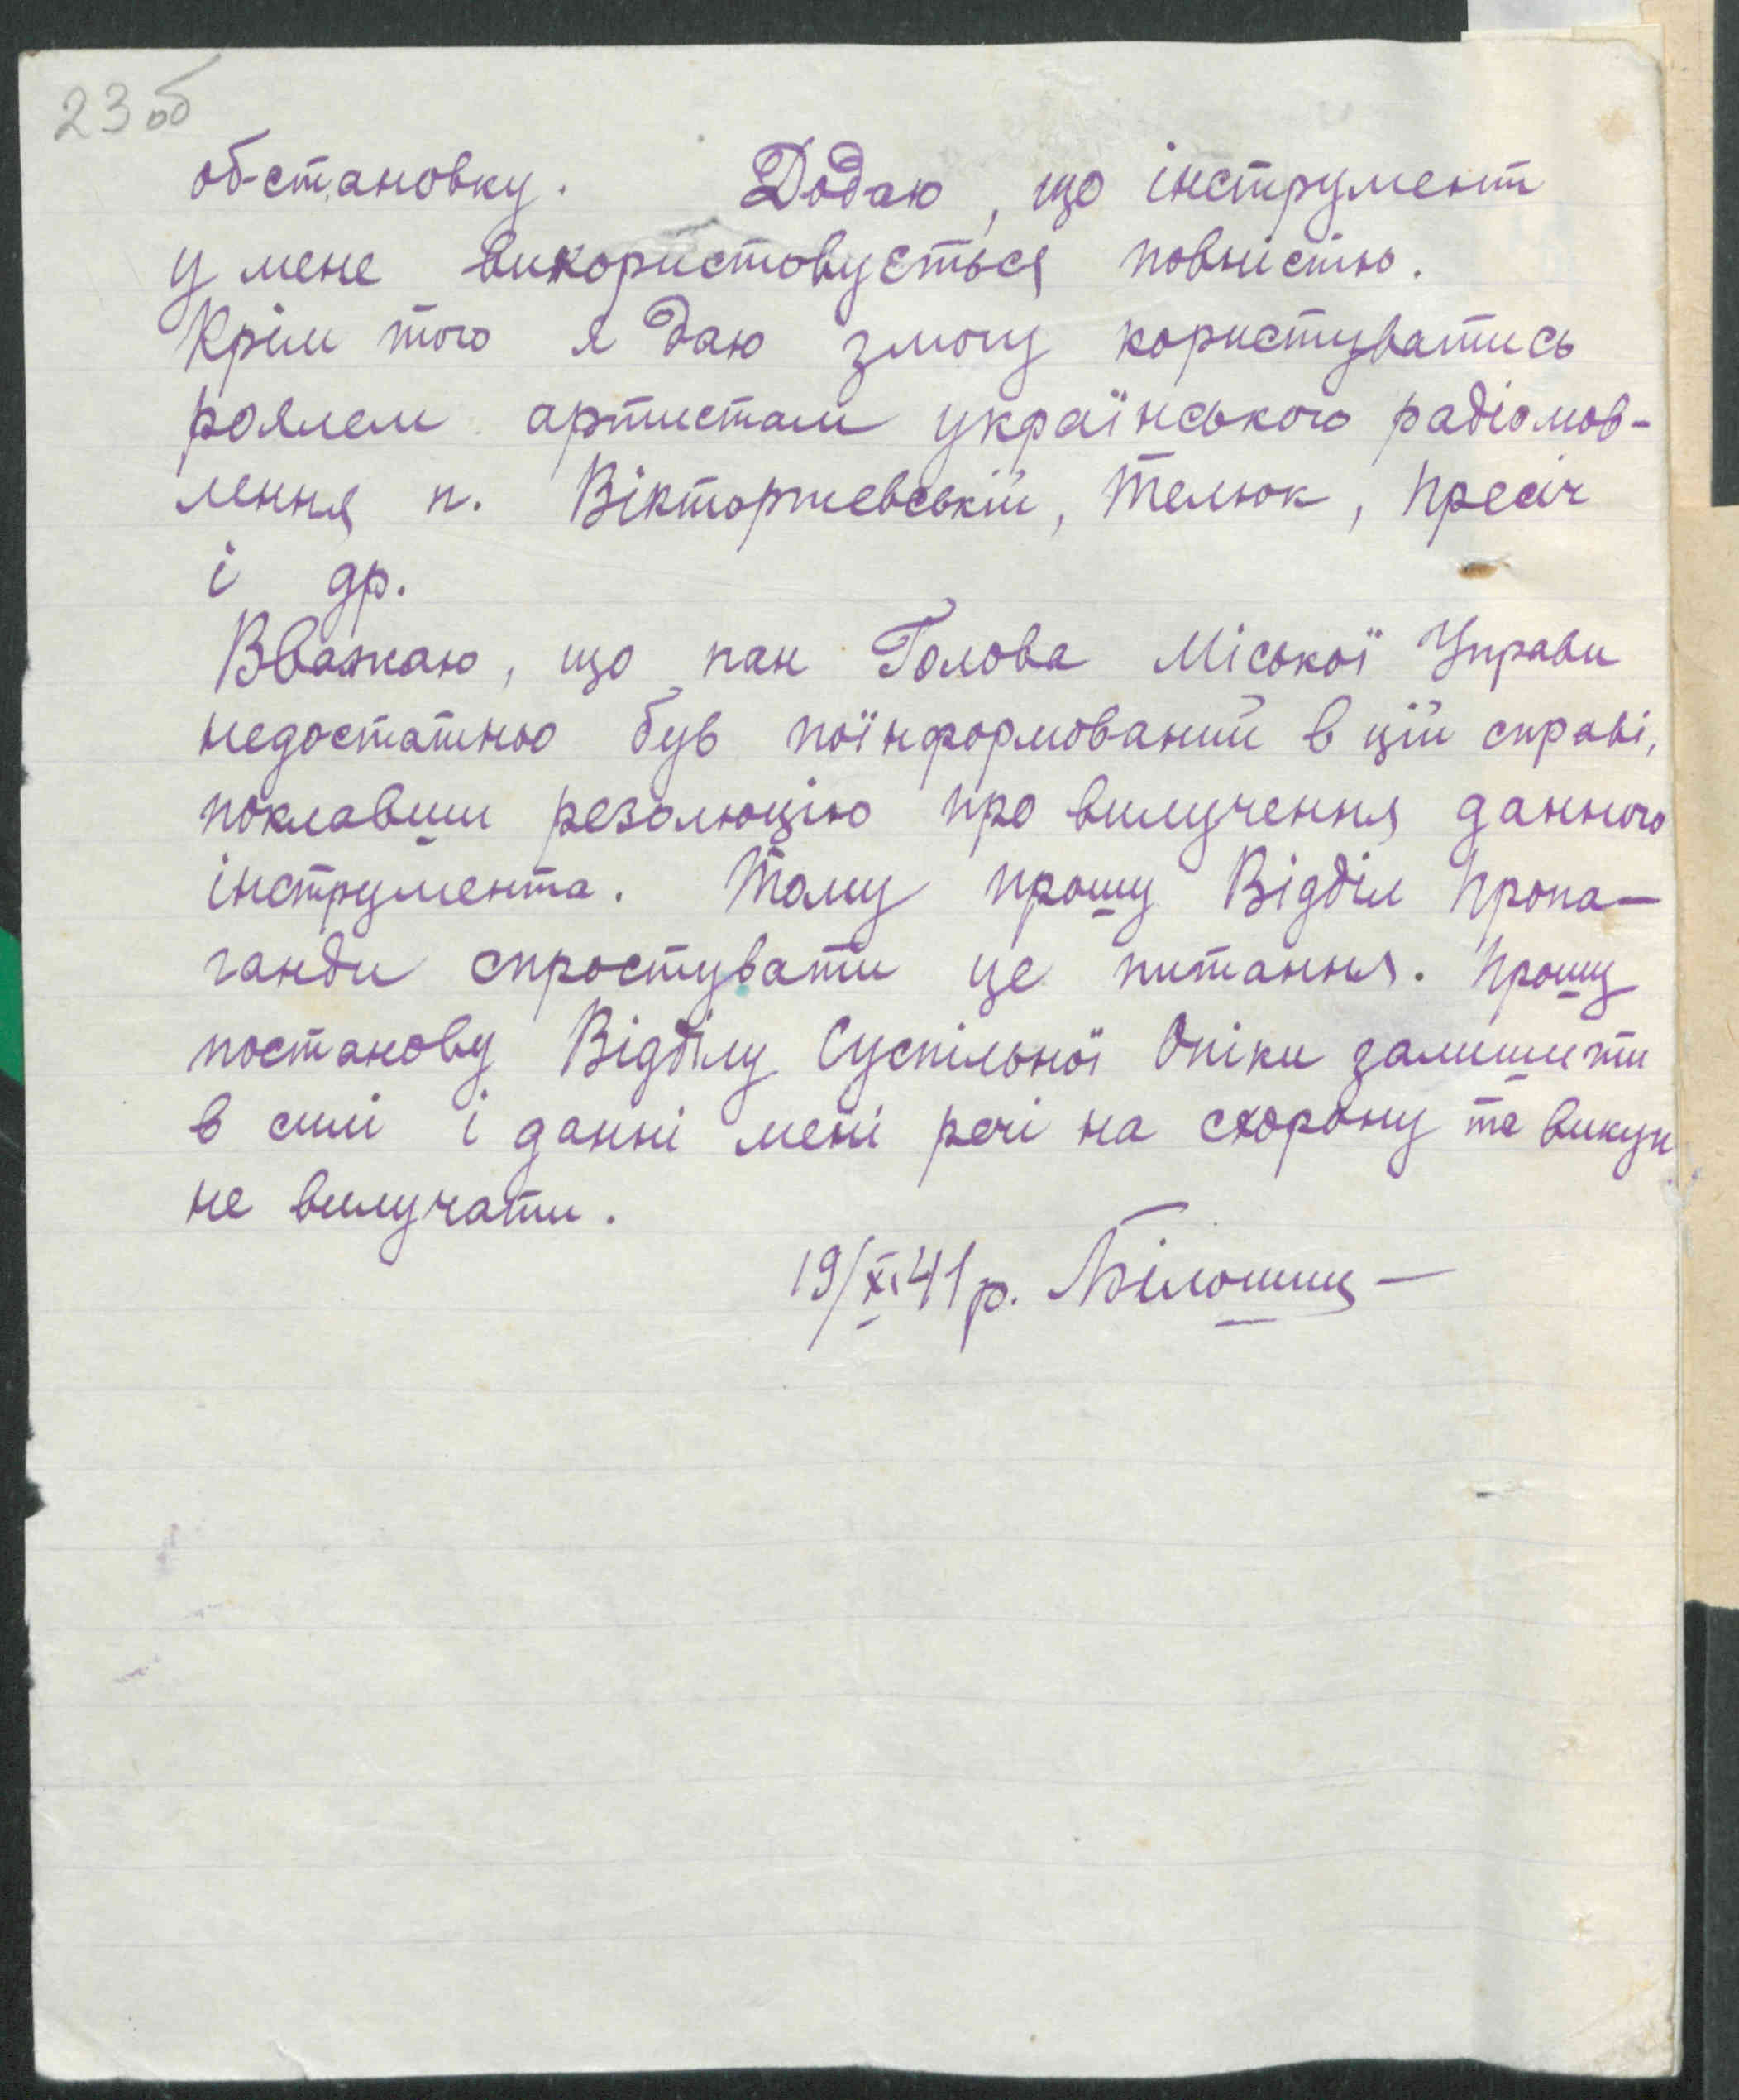 23 об
обстановку. Додаю, що інструмент
у мене використовується повністю.
Крім того я даю змогу користуватись
роялем артистам українського радіомов-
лення п. Вікторжевській, Телюк, Пресіч
і др.
Вважаю, що пан Голова Міської Управи
недостатньо був поінформований в цій справі,
поклавши резолюцію про вилучення данного
інструмента. Тому прошу Відділ Пропа-
ганди спростувати це питання. Прошу
постанову Відділу Суспільної Опіки залишити
в силі і данні мені речі на схорону та викуп
не вилучати.
19/XI 41 р.